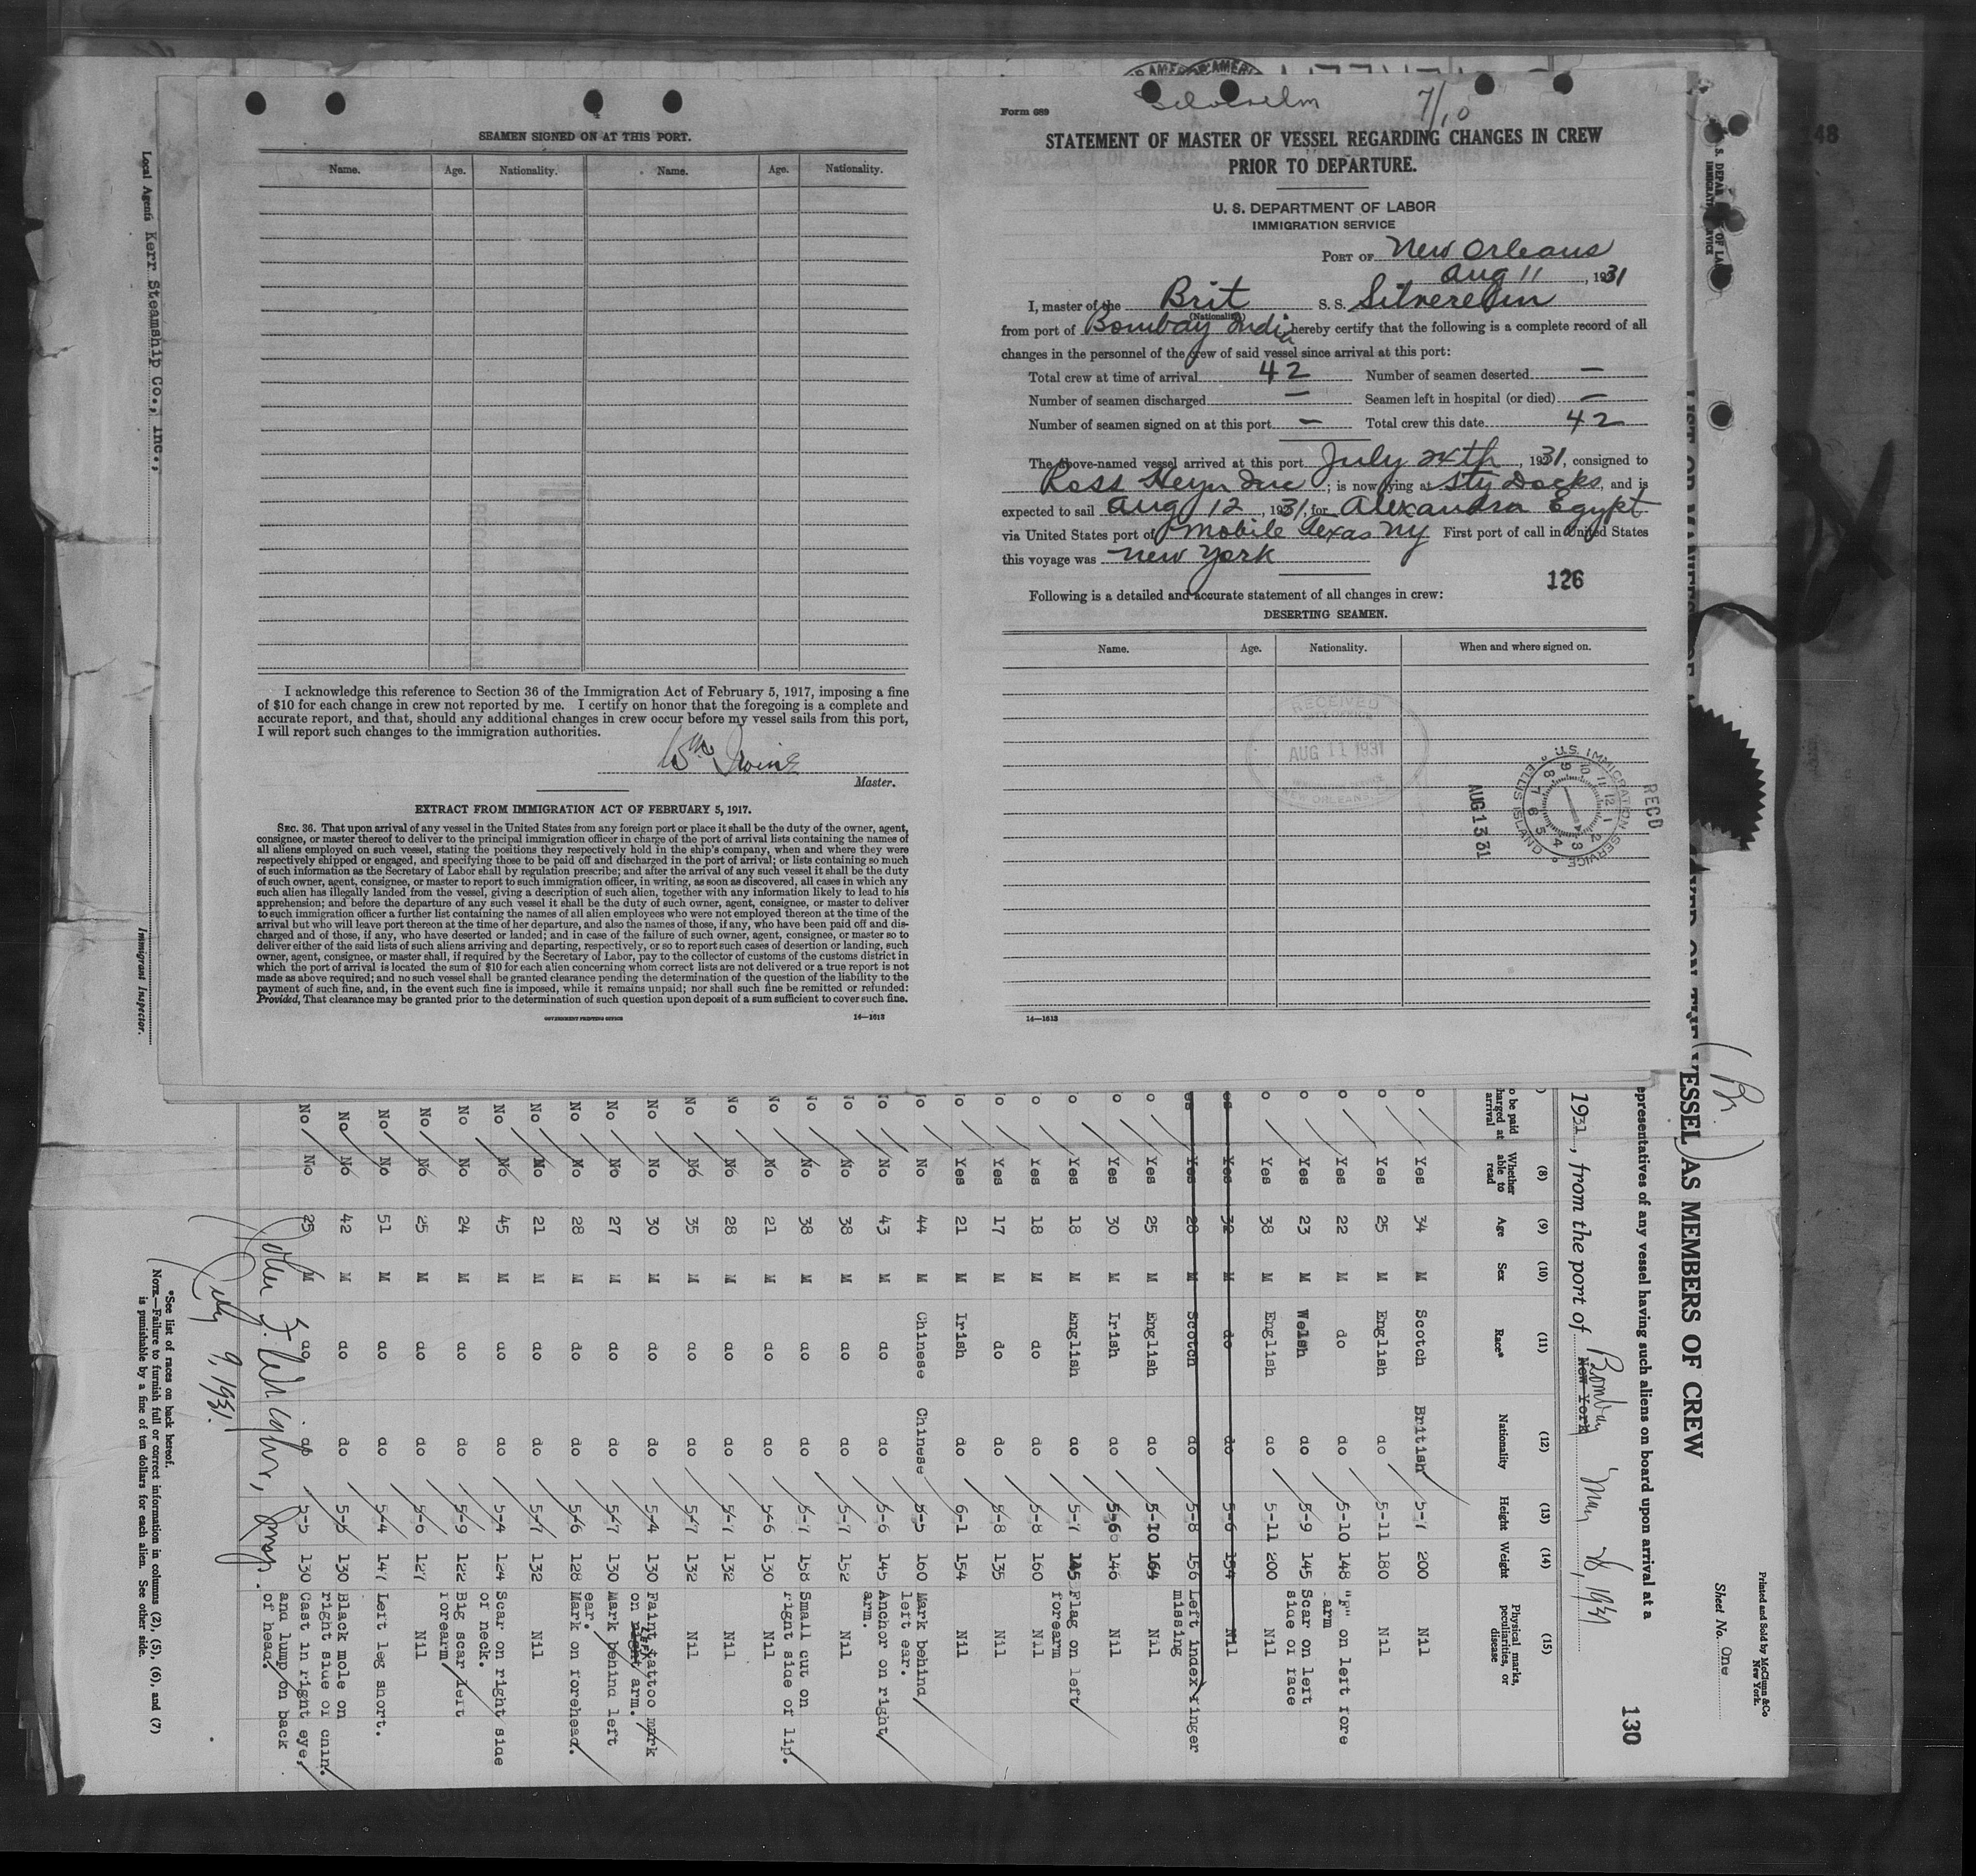 SEAMEN SIGNED ON AT THIS PORT.
Name. Age. Nationality. Name. Age. Nationality.
I acknowledge this reference to Section 36 of the Immigration Act of February 5, 1917, imposing a fine
of $10 for each change in crew not reported by me. I certify on honor that the foregoing is a complete and
accurate report, and that, should any additional changes in crew occur before my vessel sails from this port,
I will report such changes to the immigration authorities.
Wm Irvine
Master.
EXTRACT FROM IMMIGRATION ACT OF FEBRUARY 5, 1917.
SEC. 36. That upon arrival of any vessel in the United States from any foreign port or place it shall be the duty of the owner, agent,
consignee, or master thereof to deliver to the principal immigration officer in charge of the port of arrival lists containing the names of
all aliens employed on such vessel, stating the positions they respectively hold in the ship's company, when and where they were
respectively shipped or engaged, and specifying those to be paid off and discharged in the port of arrival; or lists containing so much
of such information as the Secretary of Labor shall by regulation prescribe; and after the arrival of any such vessel it shall be the duty
of such owner, agent, consignee, or master to report to such immigration officer, in writing, as soon as discovered, all cases in which any
such alien has illegally landed from the vessel, giving a description of such alien, together with any information likely to lead to his
apprehension; and before the departure of any such vessel it shall be the duty of such owner, agent, consignee, or master to deliver
to such immigration officer a further list containing the names of all alien employees who were not employed thereon at the time of the
arrival but who will leave port thereon at the time of her departure, and also the names of those, if any, who have been paid off and dis-
charged and of those, if any, who have deserted or landed; and in case of the failure of such owner, agent, consignee, or master so to
deliver either of the said lists of such aliens arriving and departing, respectively, or so to report such cases of desertion or landing, such
owner, agent, consignee, or master shall, if required by the Secretary of Labor, pay to the collector of customs of the customs district in
which the port of arrival is located the sum of $10 for each alien concerning whom correct lists are not delivered or a true report is not
made as above required; and no such vessel shall be granted clearance pending the determination of the question of the liability to the
payment of such fine, and, in the event such fine is imposed, while it remains unpaid; nor shall such fine be remitted or refunded:
Provided, That clearance may be granted prior to the determination of such question upon deposit of a sum sufficient to cover such fine.
GOVERNMENT PRINTING OFFICE 14—1613
Silverelm 7/10
Form 689
STATEMENT OF MASTER OF VESSEL REGARDING CHANGES IN CREW
PRIOR TO DEPARTURE.
U. S. DEPARTMENT OF LABOR
IMMIGRATION SERVICE
PORT OF New Orleans
Aug 11, 1931
I, master of the Brit S. S. Silverelm
(Nationality)
from port of Bombay India hereby certify that the following is a complete record of all
changes in the personnel of the crew of said vessel since arrival at this port:
Total crew at time of arrival 42 Number of seamen deserted —
Number of seamen discharged — Seamen left in hospital (or died) —
Number of seamen signed on at this port — Total crew this date 42
The above-named vessel arrived at this port July 24th, 1931, consigned to
Ross Heyn Inc; is now lying at Sty Docks, and is
expected to sail Aug 12, 1931, for Alexandra Egypt
via United States port of Mobile Texas NY First port of call in United States
this voyage was New York
126
Following is a detailed and accurate statement of all changes in crew:
DESERTING SEAMEN.
Name. Age. Nationality. When and where signed on.
RECEIVED
AUG 11 1931
NEW ORLEANS, LA.
RECD
U.S. IMMIGRATION SERVICE
ELLIS ISLAND
AUG 13 31
14—1613
48
Printed and Sold by McClunn & Co
New York.
Sheet No. One
130
(Br.)
VESSEL AS MEMBERS OF CREW
epresentatives of any vessel having such aliens on board upon arrival at a
1931, from the port of New York Bombay May 28, 1931
o be paid harged at arrival
(8) Whether able to read
(9) Age
(10) Sex
(11) Race*
(12) Nationality
(13) Height
(14) Weight
(15) Physical marks, peculiarities, or disease
o Yes 34 M Scotch British 5-7 200 Nil
o Yes 25 M English do 5-11 180 Nil
o Yes 22 M do do 5-10 148 "F" on left fore arm
o Yes 23 M Welsh do 5-9 145 Scar on left side of face
o Yes 38 M English do 5-11 200 Nil
es Yes 32 M do do 5-6 154 Nil
es Yes 28 M Scotch do 5-8 156 Left index finger missing
o Yes 25 M English do 5-10 164 Nil
o Yes 30 M Irish do 5-6 146 Nil
o Yes 18 M English do 5-7 145 Flag on left forearm
o Yes 18 M do do 5-8 160 Nil
o Yes 17 M do do 5-8 135 Nil
No Yes 21 M Irish do 6-1 154 Nil
No No 44 M Chinese Chinese 5-5 160 Mark behind left ear.
No No 43 M do do 5-6 145 Anchor on right arm.
No No 38 M do do 5-7 152 Nil
No No 38 M do do 5-7 158 Small cut on right side of lip.
No No 21 M do do 5-6 130 Nil
No No 28 M do do 5-7 132 Nil
No No 35 M do do 5-7 132 Nil
No No 30 M do do 5-4 130 Faint tattoo mark on right left arm.
No No 27 M do do 5-7 130 Mark behind left ear.
No No 28 M do do 5-6 128 Mark on forehead.
No No 21 M do do 5-7 132 Nil
No No 45 M do do 5-4 124 Scar on right side of neck.
No No 24 M do do 5-9 122 Big scar left forearm
No No 25 M do do 5-6 127 Nil
No No 51 M do do 5-4 147 Left leg short.
No No 42 M do do 5-5 130 Black mole on right side of chin.
No No 25 M do do 5-5 130 Cast in right eye, and lump on back of head.
July 9, 1931.
*See list of races on back hereof.
NOTE.—Failure to furnish full or correct information in columns (2), (5), (6), and (7)
is punishable by a fine of ten dollars for each alien. See other side.
Local Agents Kerr Steamship Co., Inc.,
Immigrant Inspector.